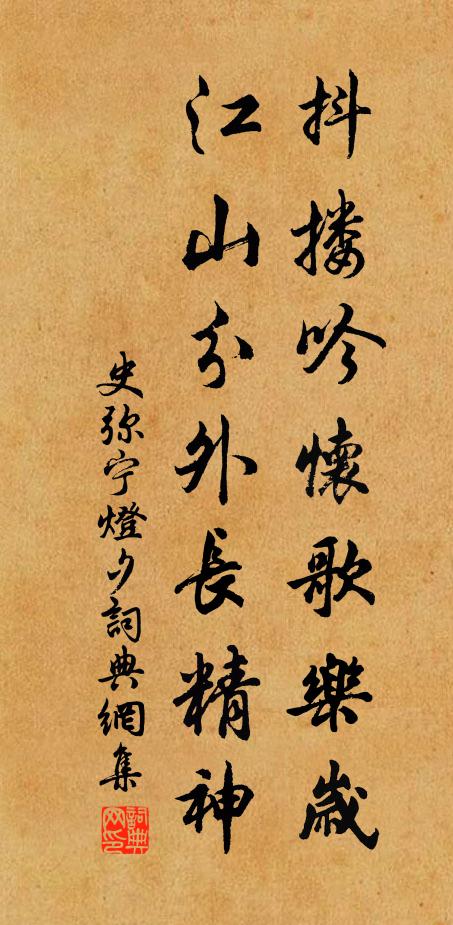 抖搂吟懷歌樂歲
江山分外長精神
史弥宁燈夕詞典網集
詞典网印